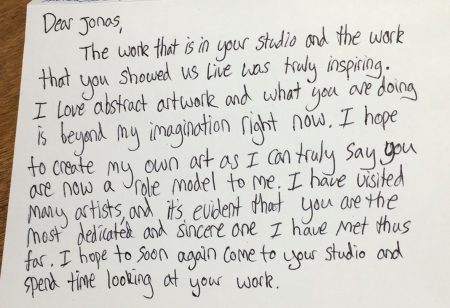 Dear Jonas,
The work that is in your studio and the work
that you showed us live was truly inspiring.
I love abstract artwork and what you are doing
is beyond my imagination right now. I hope
to create my own art as I can truly say you
are now a role model to me. I have visited
many artists, and it's evident that you are the
most dedicated and sincere one I have met thus
far. I hope to soon again come to your studio and
spend time looking at your work.